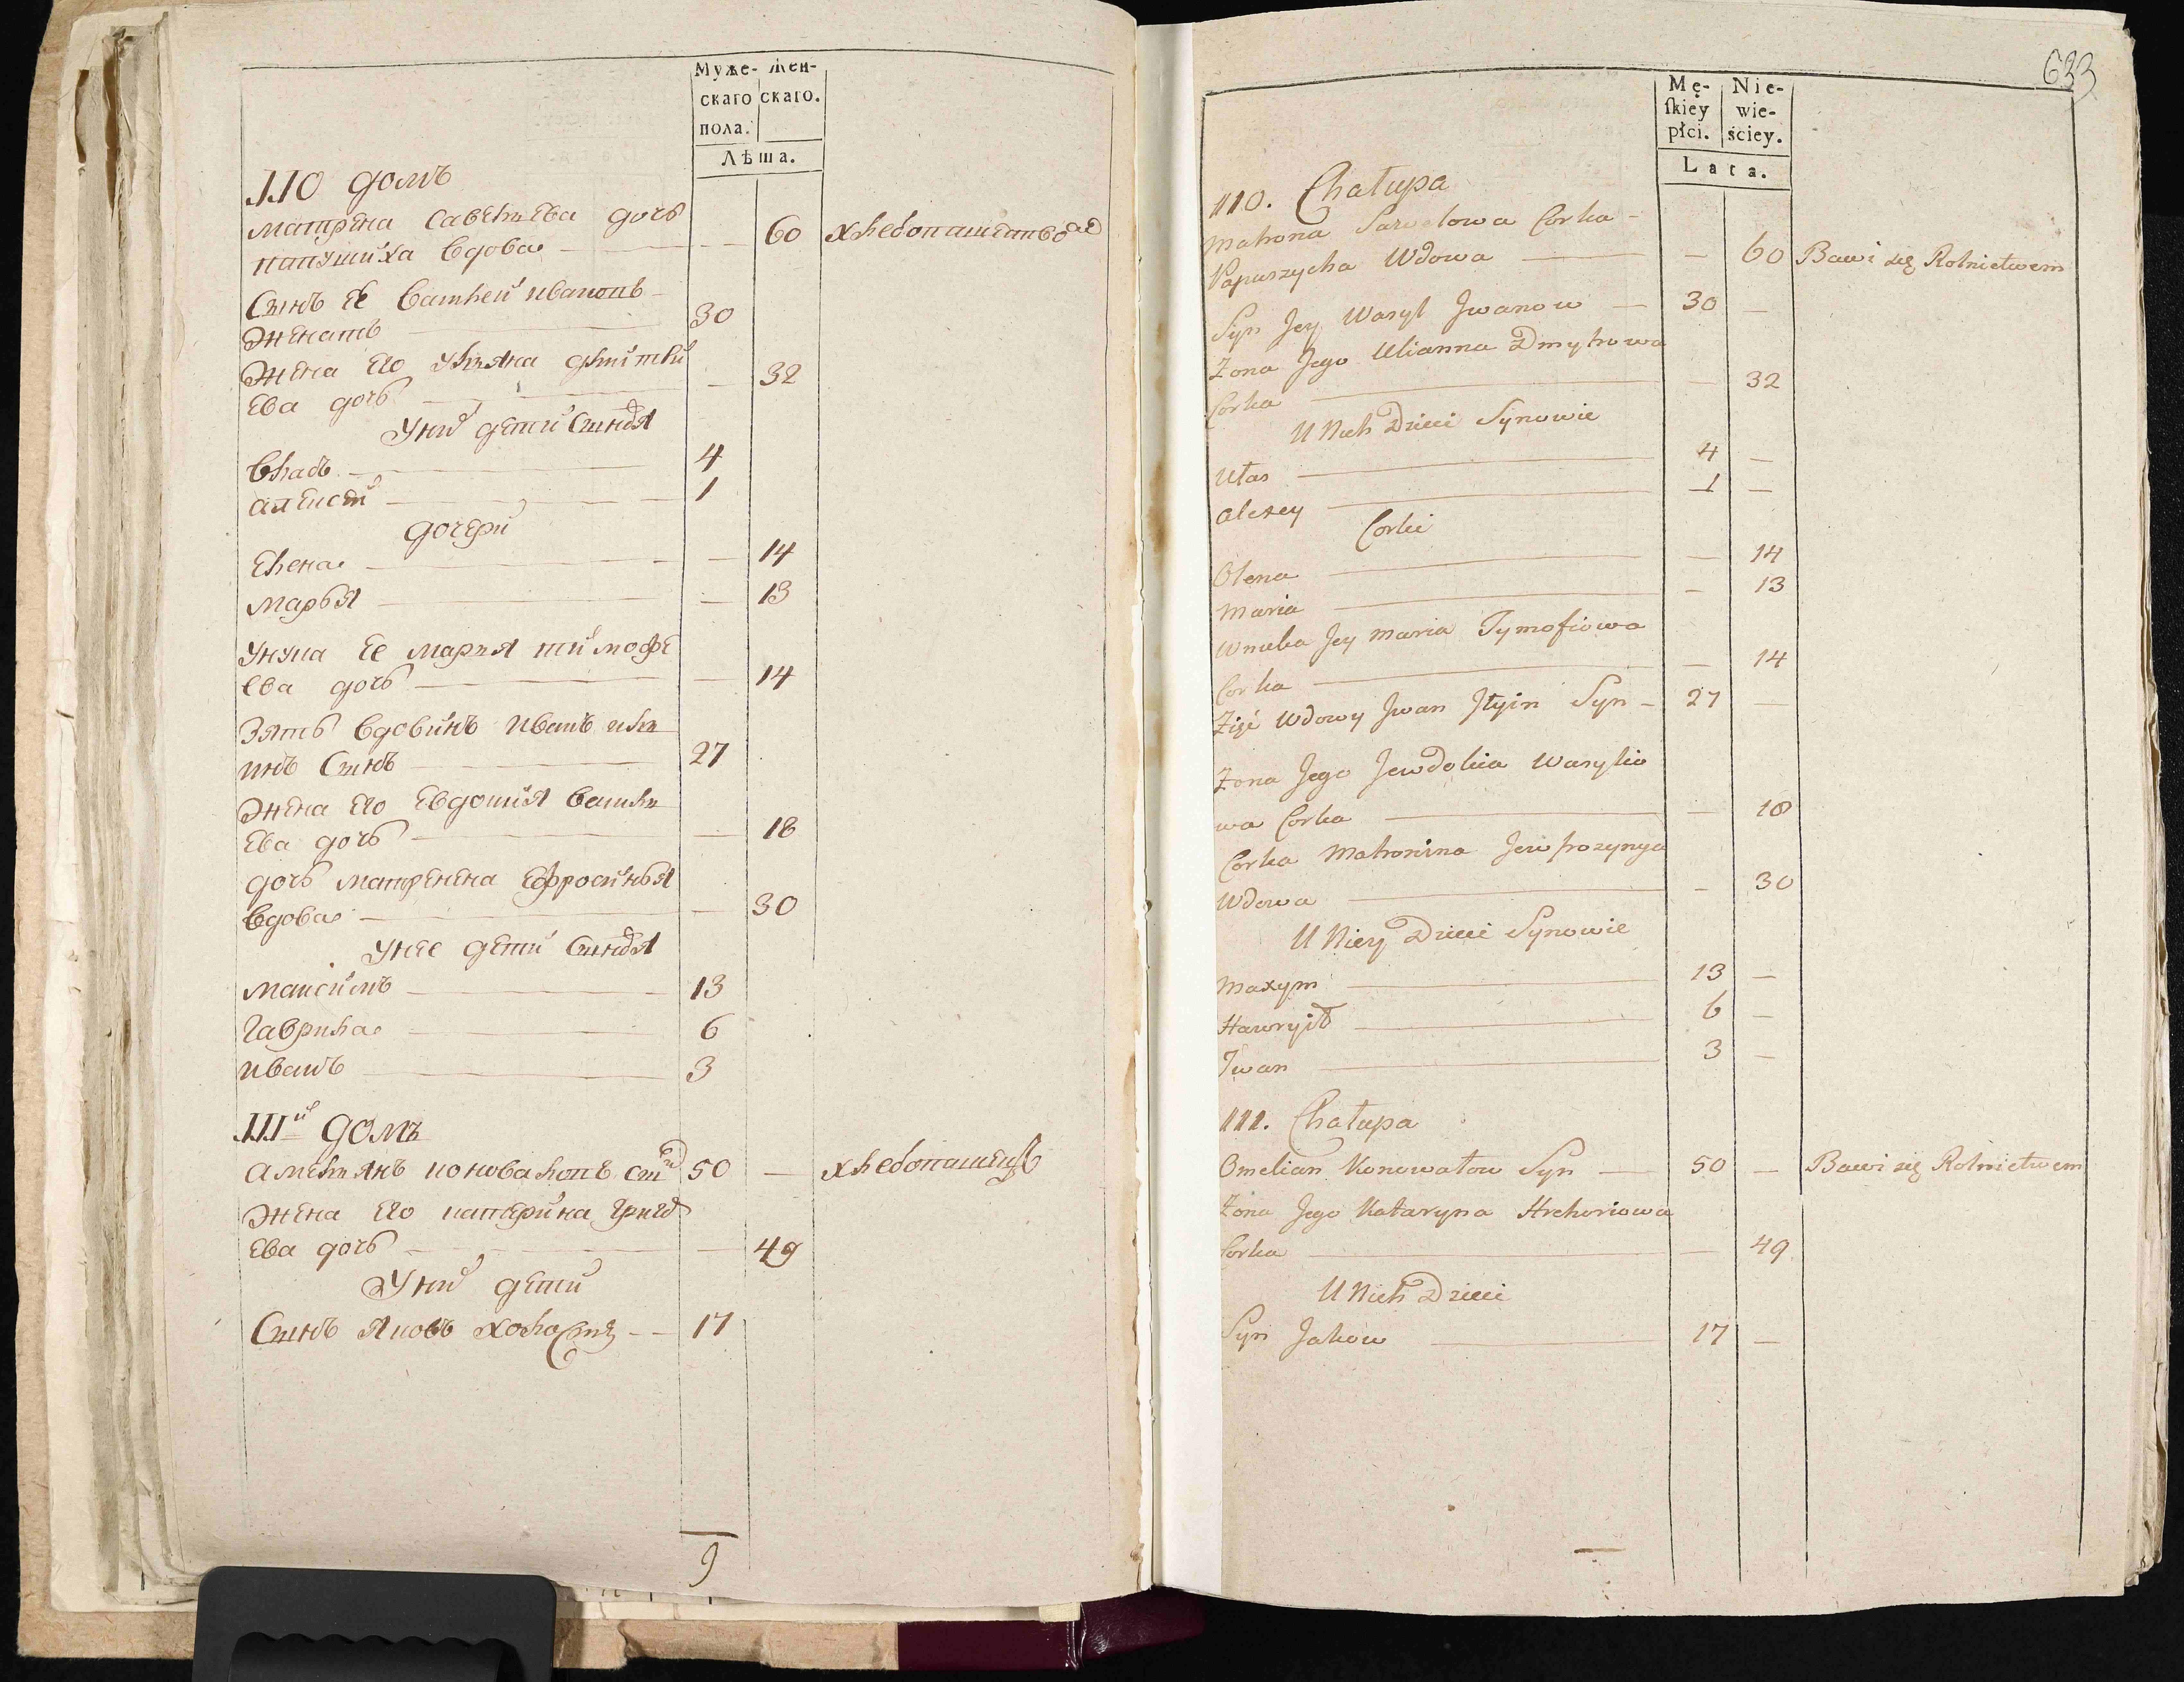 Муже- Жен-
скаго скаго.
пола.
Лѣта.
110 домъ
Матрена Савельева дочь
папушиха вдова — — 60
Сынъ ее Василей Ивановъ
женатъ — 30
Жена его Ульяна Дмитри
ева дочь — — 32
У них дети Сыновя
Власъ — 4
Алексей — 1
дочери
Елена — — 14
Марья — — 13
Унука ее Мария Тимофе
ева дочь — — 14
Зять вдовинъ Иванъ Ильи
инъ Сынъ — 27
Жена его Евдокия Василь
ева дочь — — 18
дочь Матренена Ефросинья
вдова — — 30
У нее дети Сыновя
Максимъ — 13
Гаврила — 6
Иванъ — 3
111й домъ
Амельянъ Коновалопъ 50 —
Жена его Катерина Григо
ева дочь — 49
У них дети
Сынъ Яковъ холостъ — 17
9
633
Mę- Nie-
skiey wie-
płci. ściey.
Lata.
110. Chałupa
Matrona Sawelowa Corka -
Papuszycha Wdowa — — 60 Bawi się Rolnictwem
Syn Jey Wasyl Jwanow — 30 —
Żona Jego Ulianna Dmytrowa
Corka — — 32
U Nich Dzieci Synowie
Ułas — 4 —
Alexey — 1 —
Corki
Olena — — 14
Maria — — 13
Wnuka Jey Maria Tymofiowa
Corka — — 14
Zięć Wdowy Jwan Jłyin Syn - 27 —
Żona Jego Jewdokia Wasylio
wa Corka — — 18
Corka Matronina Jewfrozynya
Wdowa — - 30
U Niey Dzieci Synowie
Maxym — 13 —
Hawryło — 6 —
Jwan — 3 —
111. Chałupa
Omelian Konowałow Syn — 50 — Bawi się Rolnictwem
Żona Jego Kataryna Hrehoriowa
Corka — — 49
U Nich Dzieci
Syn Jakow — 17 —